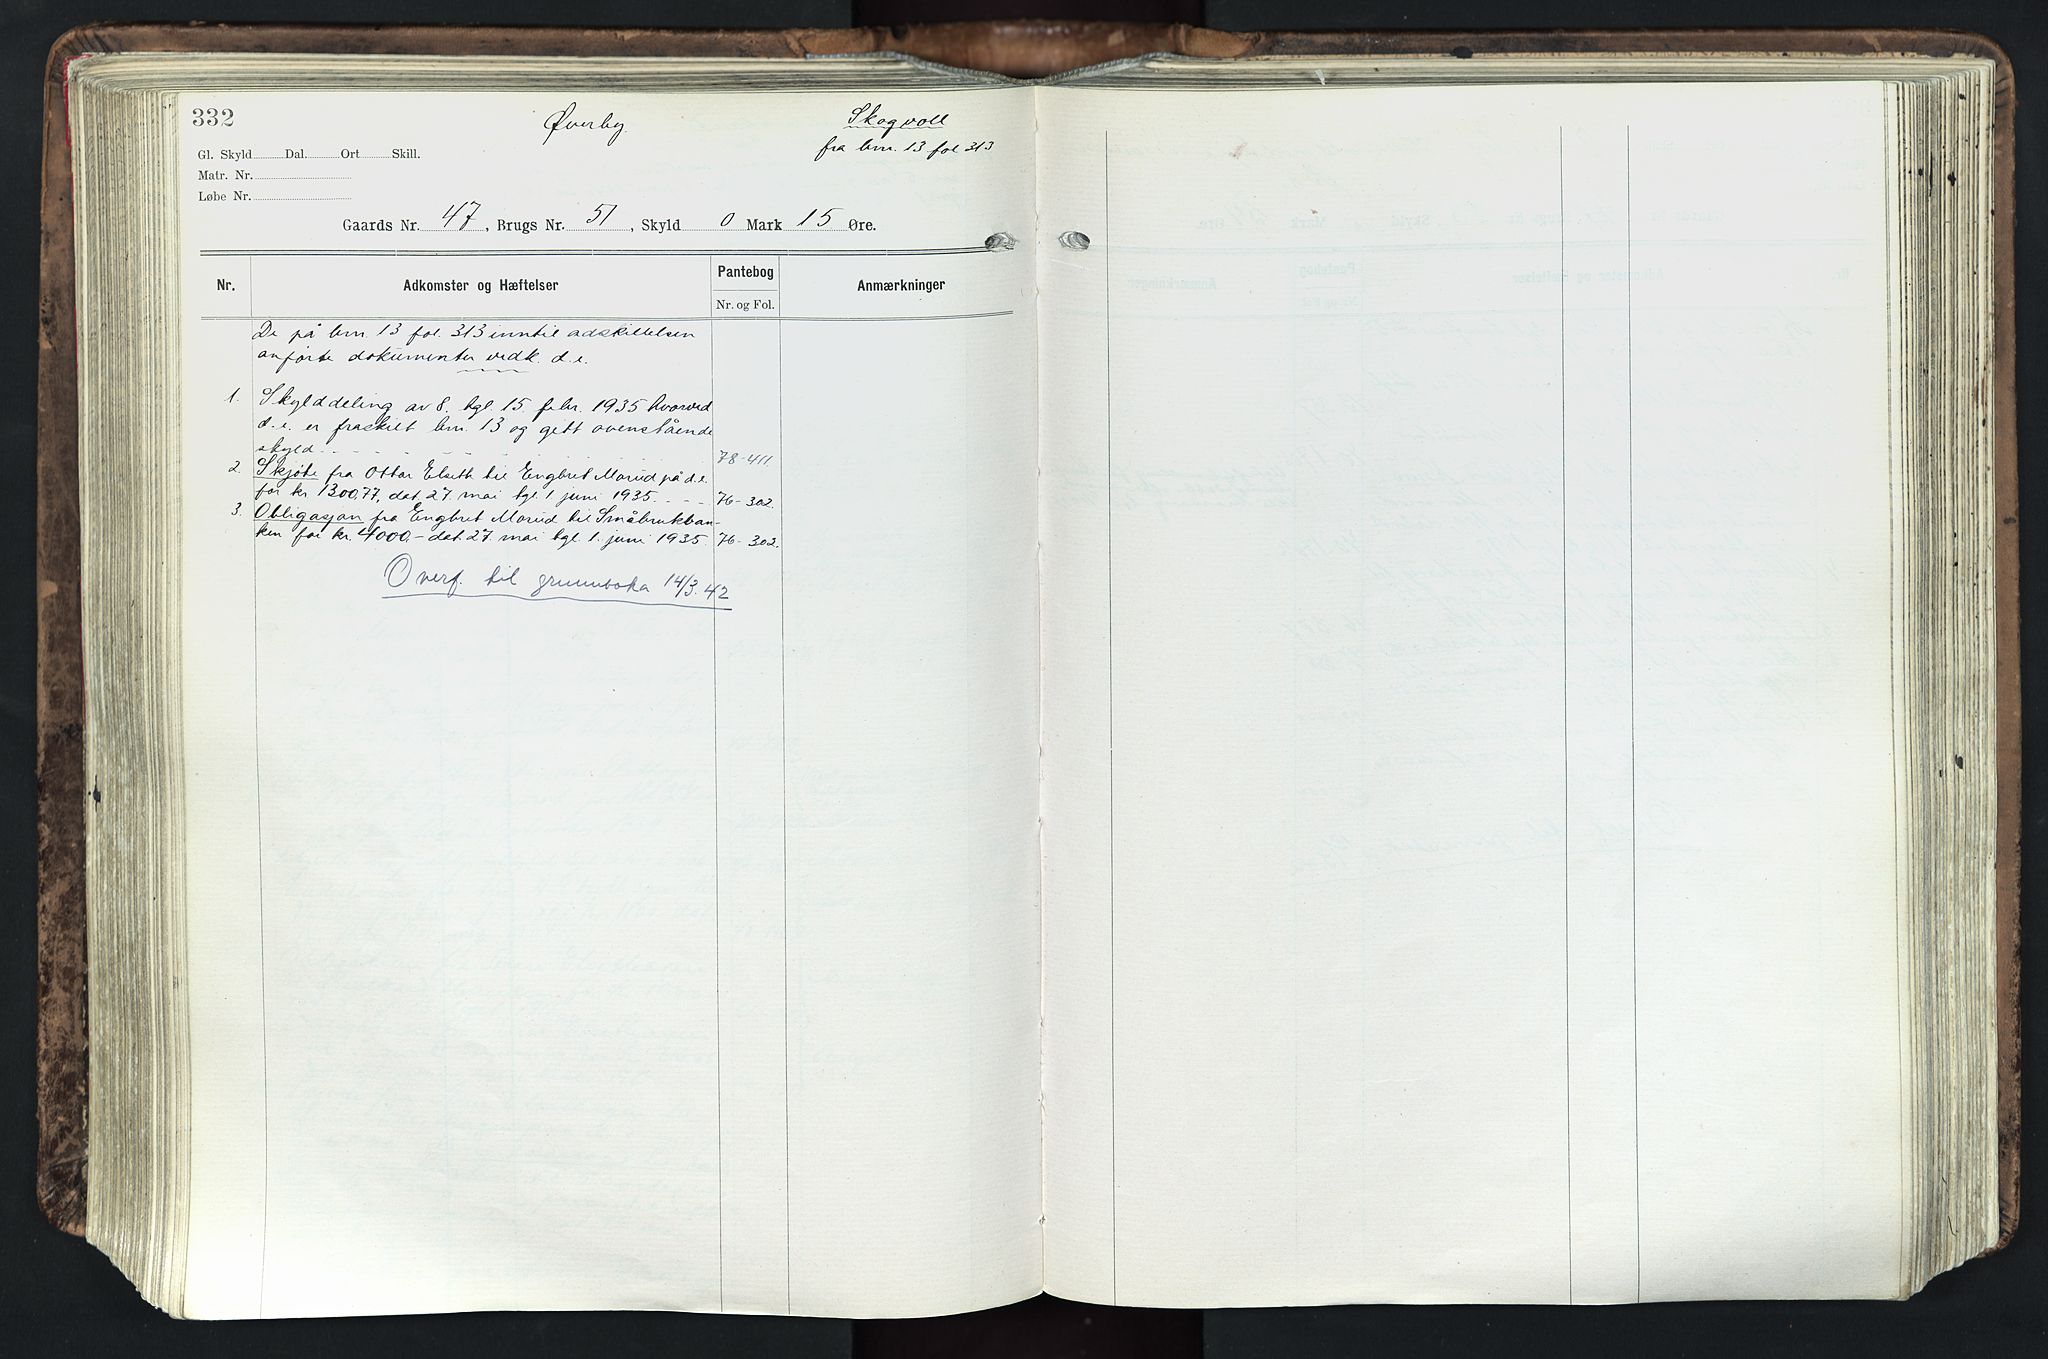 332
Øverby.
Skogvoll
fra brn. 13 fol 313
Gl. Skyld........Dal.........Ort........Skill.
Matr. Nr.
Løbe Nr.
Gaards Nr. 47, Brugs Nr. 51, Skyld 0 Mark 15 Øre.
Nr.
Adkomster og Hæftelser
Pantebog
Nr. og Fol.
Anmærkninger
De på brn. 13 fol. 313 inntil adskillelsen
anførte dokumenter vedk. d.e.
1. Skylddeling av 8. tgl. 15. febr. 1935 hvorved
d.e. er fraskilt brn. 13 og gett ovenstående
skyld. 78-411.
2. Skjøte fra Ottar Elseth til Engbret Morud på d.e.
for kr 1300,77, dat. 27. mai tgl. 1 juni 1935. - - 76-302.
3. Obligasjon fra Engbret Morud til Småbrukban-
ken for kr. 4000.- dat. 27. mai tgl. 1. juni 1935. 76-302.
Overf. til grunnboka 14/3.42